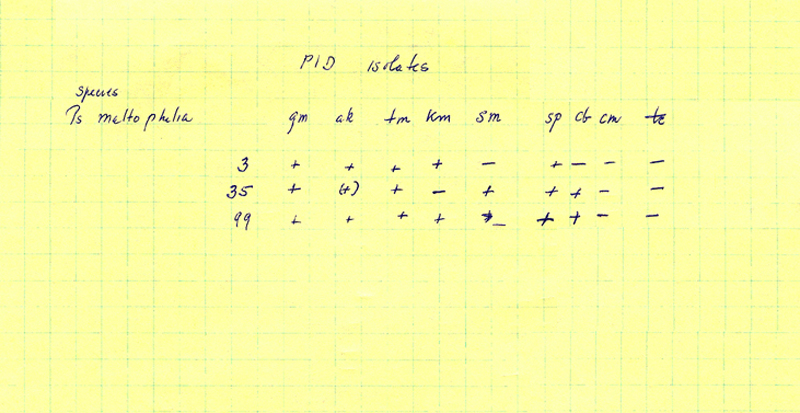 PID isolates
species
Ps maltophelia gm ak tm km sm sp cb cm tc
3 + + + + - + - - -
35 + (+) + - + + + - -
99 + + + + - + + - -